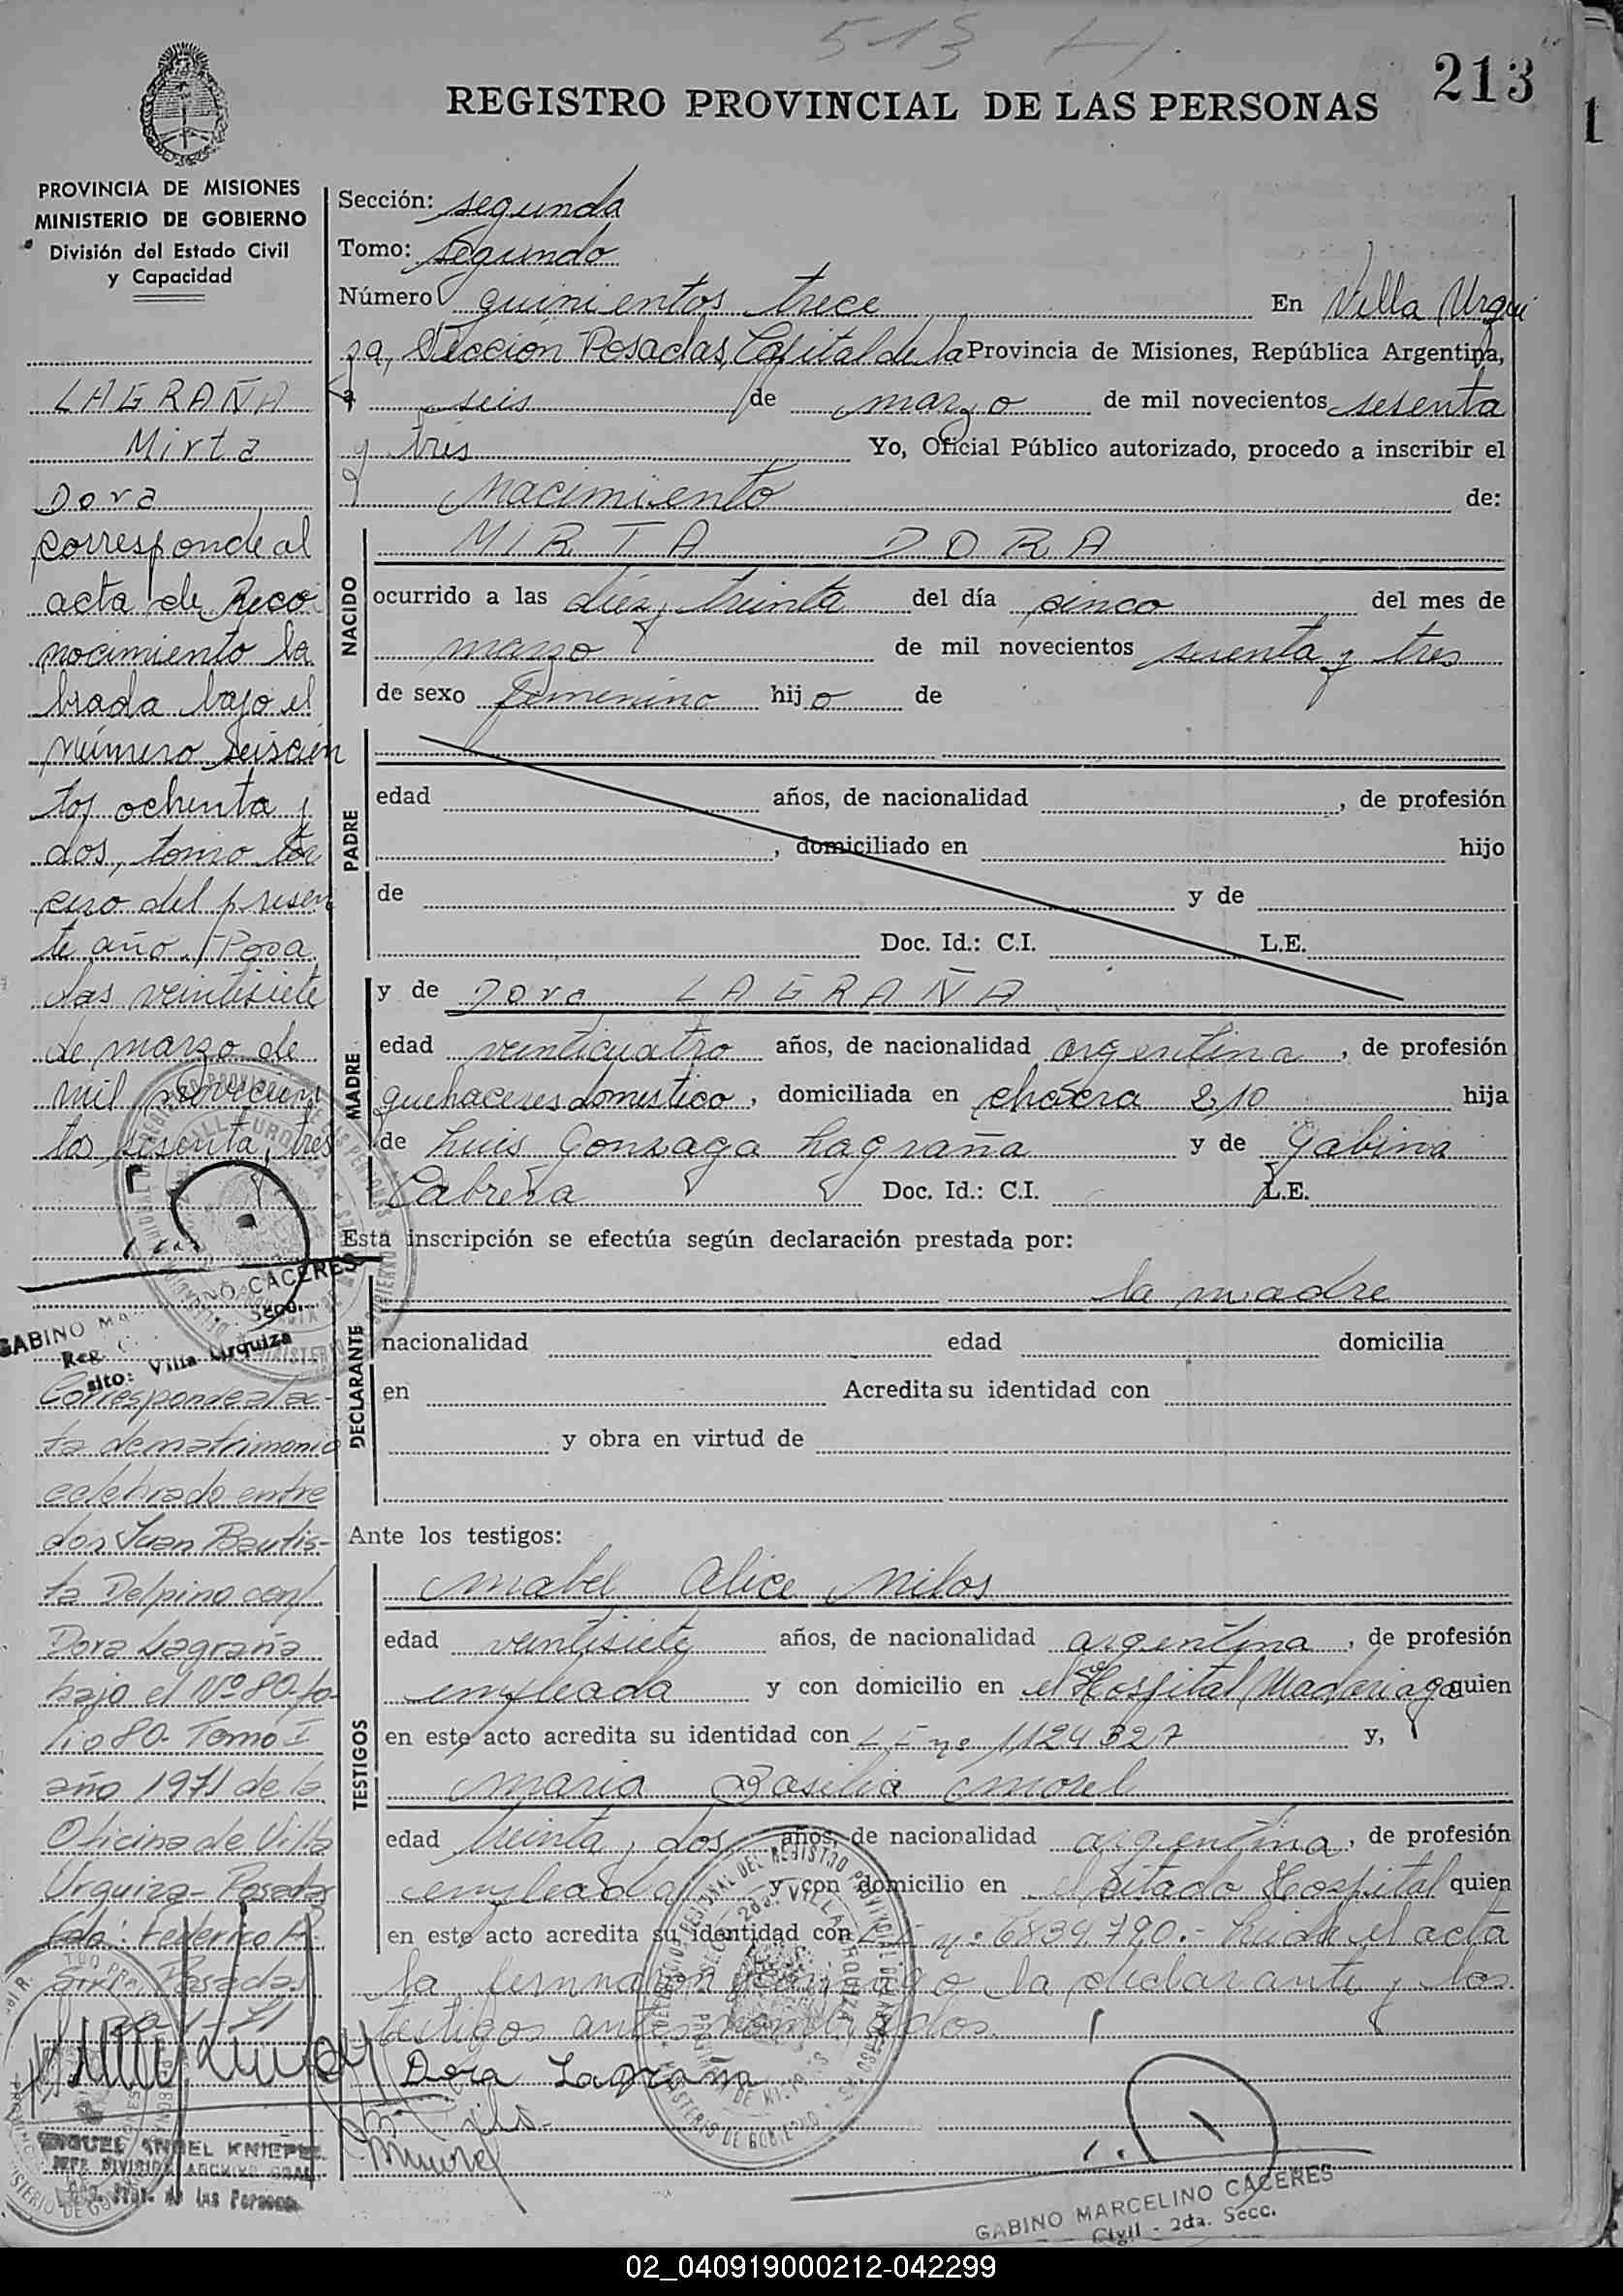 513
213
REGISTRO PROVINCIAL DE LAS PERSONAS
PROVINCIA DE MISIONES
MINISTERIO DE GOBIERNO
División del Estado Civil
y Capacidad
LAGRAÑA
Mirta
Dora
corresponde al
acta de Reco
nocimiento la
brada bajo el
número seiscien
tos ochenta y
dos, tomo ter
cero del presen
te año. Posa
das veintisiete
de marzo de
mil novecien
tos sesenta y tres
GABINO MA
CACERES
Reg.
Secc.
sito: Villa Urquiza
Corresponde al ac-
ta de matrimonio
celebrado entre
don Juan Bautis-
ta Delpino con
Dora Lagraña
bajo el Nº 80-fo-
lio 80. Tomo I
año 1971 de la
Oficina de Villa
Urquiza-Posadas
Fdo: Federico A.
Posadas
MIGUEL ANGEL KNIEPE
JEFE DIVISION ARCHIVO GRAL.
Reg. Prov. de las Personas
Sección: segunda
Tomo: Segundo
Número quinientos trece En Villa Urqui
za, Sección Posadas, Capital de la Provincia de Misiones, República Argentina,
a seis de marzo de mil novecientos sesenta
y tres Yo, Oficial Público autorizado, procedo a inscribir el
Nacimiento de:
NACIDO
MIRTA DORA
ocurrido a las diez y treinta del día cinco del mes de
marzo de mil novecientos sesenta y tres
de sexo femenino hijo de
PADRE
edad años, de nacionalidad , de profesión
, domiciliado en hijo
de y de
Doc. Id.: C.I. L.E.
MADRE
y de Dora LAGRAÑA
edad veinticuatro años, de nacionalidad argentina, de profesión
quehaceres domestico, domiciliada en chacra 210 hija
de Luis Gonzaga Lagraña y de Gabina
Cabrera Doc. Id.: C.I. L.E.
Esta inscripción se efectúa según declaración prestada por:
DECLARANTE
la madre
nacionalidad edad domicilia
en Acredita su identidad con
y obra en virtud de
Ante los testigos:
TESTIGOS
Mabel Alice Milos
edad veintisiete años, de nacionalidad argentina, de profesión
empleada y con domicilio en el Hospital Madariaga quien
en este acto acredita su identidad con nº 1124327 y,
Maria Basilia Morel
edad treinta y dos años, de nacionalidad argentina, de profesión
empleada y con domicilio en el citado Hospital quien
en este acto acredita su identidad con nº 6834.790.- Leida el acta
la firmaron conmigo la declarante y los
testigos antes nombrados.
Dora Lagraña
GABINO MARCELINO CACERES
Civil - 2da. Secc.
02_040919000212-042299